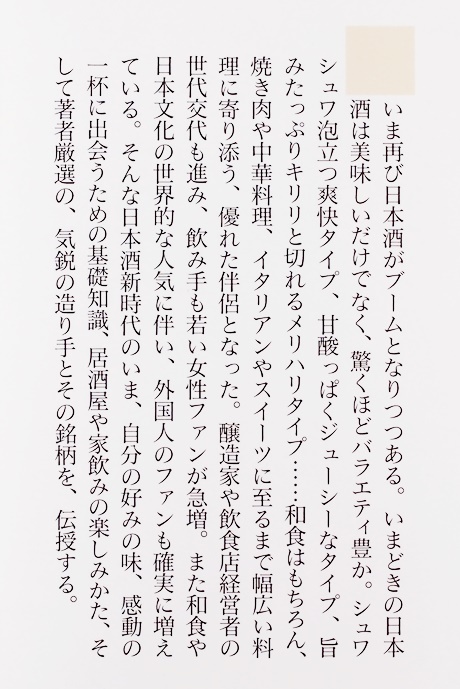 いま再び日本酒がブームとなりつつある。いまどきの日本
酒は美味しいだけでなく、驚くほどバラエティ豊か。シュワ
シュワ泡立つ爽快タイプ、甘酸っぱくジューシーなタイプ、旨
みたっぷりキリリと切れるメリハリタイプ……和食はもちろん、
焼き肉や中華料理、イタリアンやスイーツに至るまで幅広い料
理に寄り添う、優れた伴侶となった。醸造家や飲食店経営者の
世代交代も進み、飲み手も若い女性ファンが急増。また和食や
日本文化の世界的な人気に伴い、外国人のファンも確実に増え
ている。そんな日本酒新時代のいま、自分の好みの味、感動の
一杯に出会うための基礎知識、居酒屋や家飲みの楽しみかた、そ
して著者厳選の、気鋭の造り手とその銘柄を、伝授する。